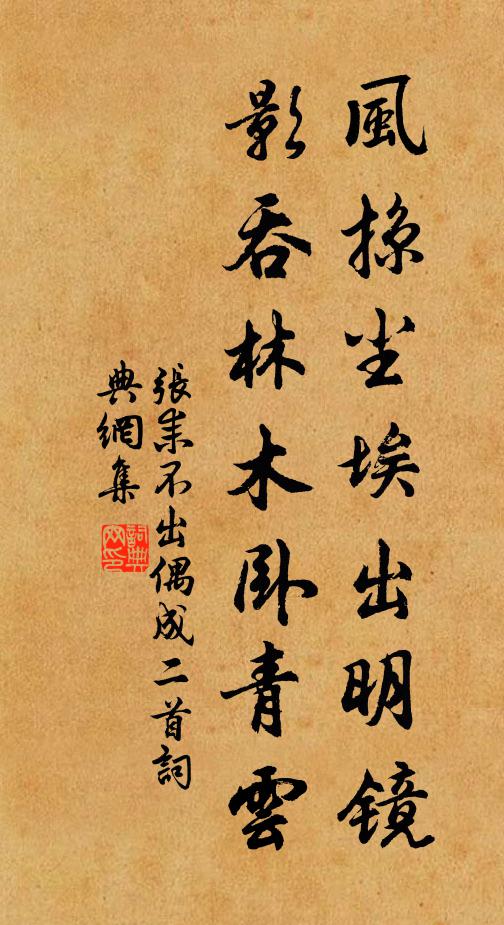 風掠尘埃出明鏡
影吞林木卧青雲
張耒不出偶成二首詞
典網集
詞典
网印